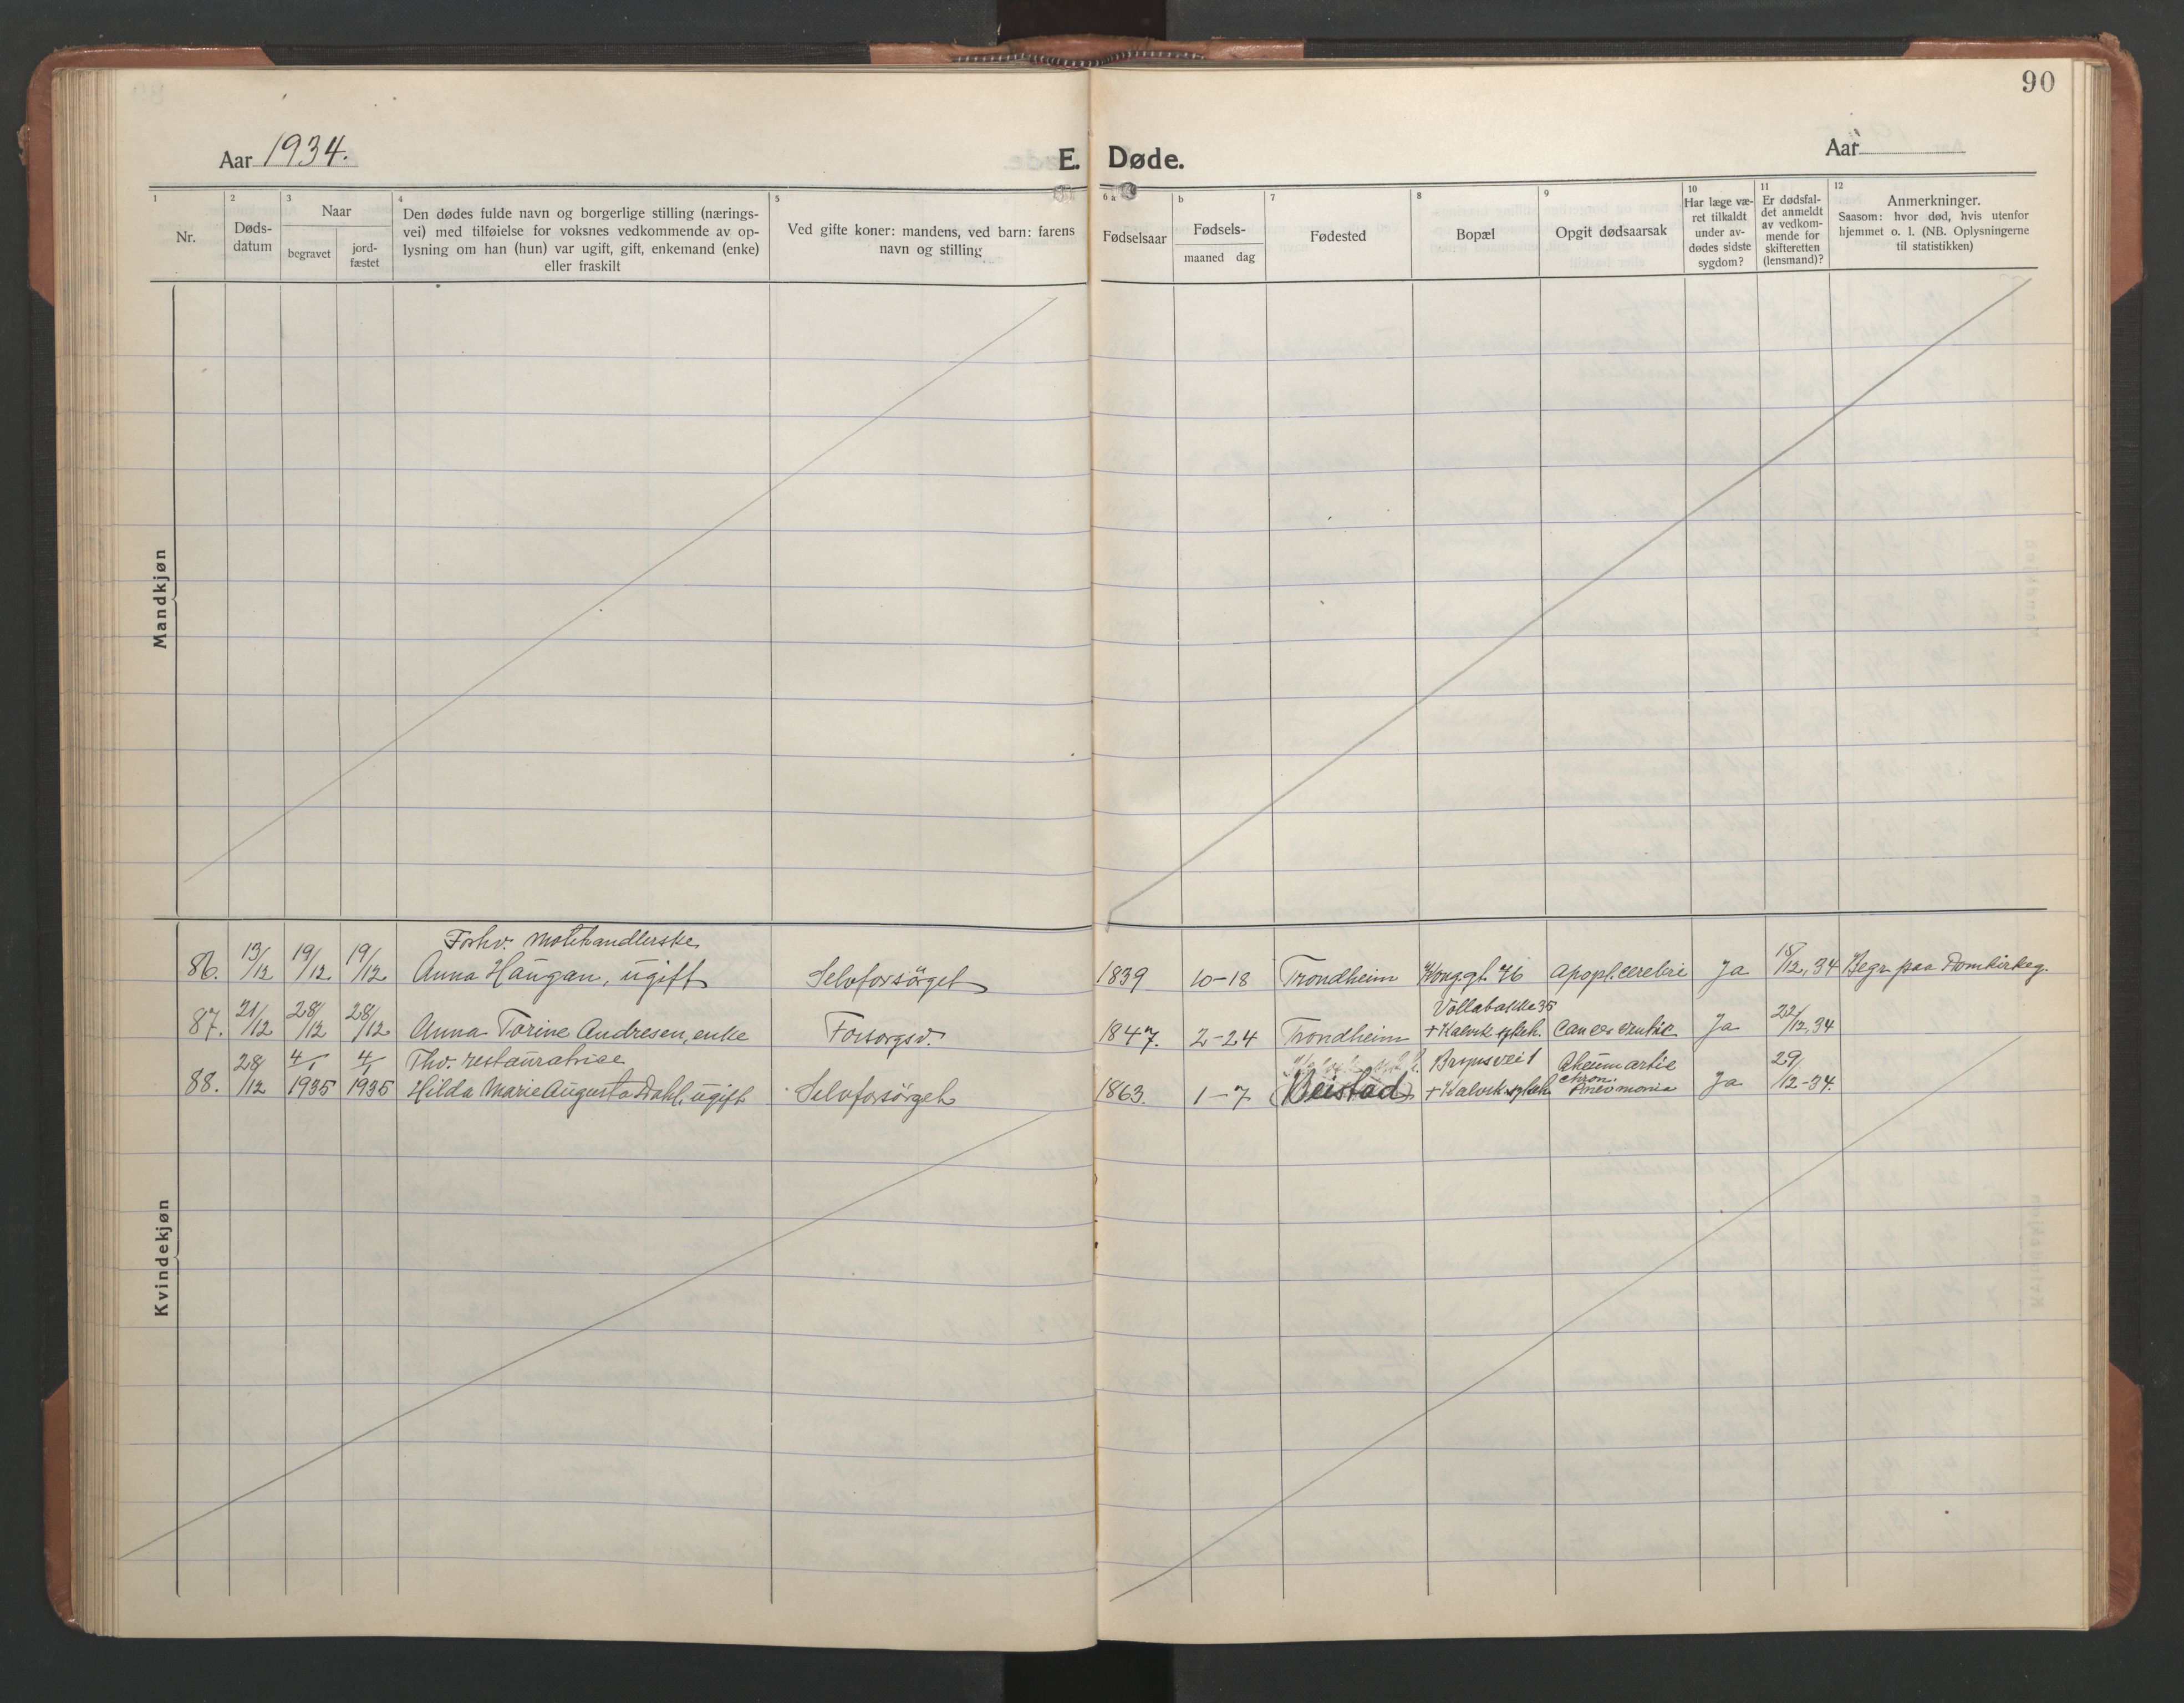 90
Aar 1934.
E. Døde.
Aar
1
2
3
4
5
6 a
b
7
8
9
10
11
12
Nr.
Døds-
datum
Naar
begravet
jord-
fæstet
Den dødes fulde navn og borgerlige stilling (nærings-
vei) med tilføielse for voksnes vedkommende av op-
lysning om han (hun) var ugift, gift, enkemand (enke)
eller fraskilt
Ved gifte koner: mandens, ved barn: farens
navn og stilling
Fødselsaar
Fødsels-
maaned dag
Fødested
Bopæl
Opgit dødsaarsak
Har læge væ-
ret tilkaldt
under av-
dødes sidste
sygdom?
Er dødsfal-
det anmeldt
av vedkom-
mende for
skifteretten
(lensmand)?
Anmerkninger.
Saasom: hvor død, hvis utenfor
hjemmet o. l. (NB. Oplysningerne
til statistikken)
Mandkjøn
Forhv. Motehandlerske
86. 13/12 19/12. 19/12 Anna Haugan, ugift Selvforsörget 1839 10-18 Trondheim Kong.gt. 76 Apopl. cerebri Ja 18/12, 34 Begr. paa Domkirkeg.
Vollabakke 35
87. 21/12 28/12 28/12 Anna Torine Andresen, enke Forsorgsv. 1847. 2-24 Trondheim + Kalvsk. sykeh. Cancer ventric Ja 22/12, 34
Fhv. restauratrice Brynsveit Rheumartic
chron.
88. 28/12 4/1 1935 4/1 1935 Hilda Marie Augusta Dahl, ugift Selvforsörget 1863. 1-7 (Beistad) + Kalvsk. sykeh. Pneumonia Ja 29/12-34.
Kvindekjøn